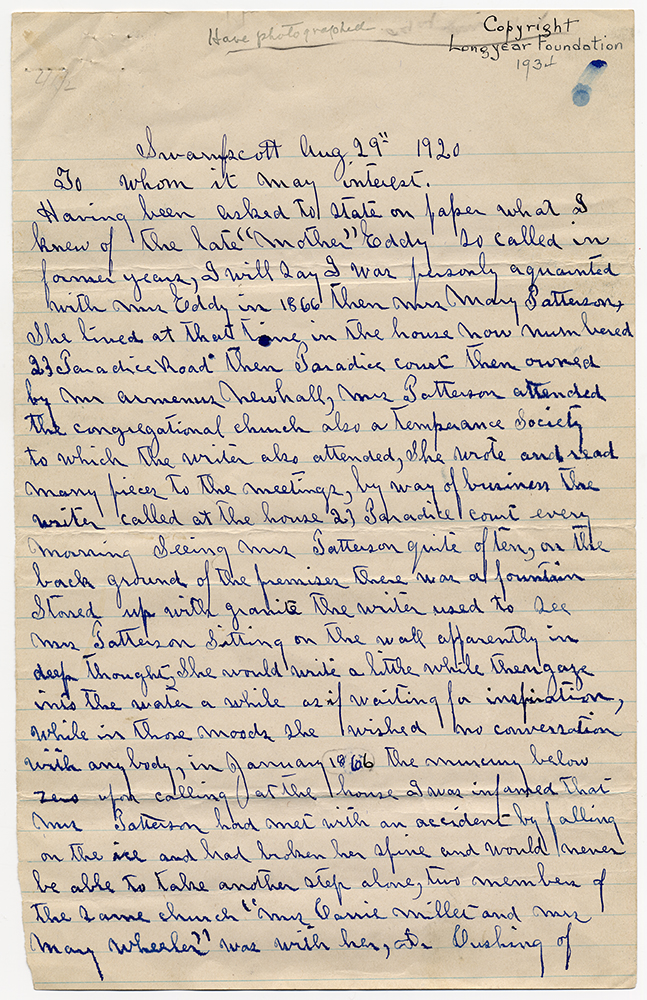 Have photographed
Copyright
Longyear Foundation
1934
Swampscott Aug. 29" 1920
To whom it may interest.
Having been asked to state on paper what I
knew of the late "Mother" Eddy so called in
former years, I will say I was personly aquanted
with Mrs Eddy in 1866 then Mrs Mary Patterson,
She lived at that time, in the house now numbered
23 Paradice Road then Paradice court then owned
by Mr Armenus Newhall, Mrs Patterson attended
the congregational church also a temperance Society
to which the writer also attended, She wrote and read
many pieces to the meetings, by way of business the
writer called at the house 23 Paradice court every
morning Seeing Mrs Patterson quite often, on the
back ground of the premises there was a fountain
Stoned up with granite the writer used to see
Mrs Patterson Sitting on the wall apparently in
deep thought, She would write a little while then gaze
into the water a while as if waiting for inspiration,
while in those moods she wished no conversation
with any body, in January 1866 the mercury below
zero upon calling at the house I was informed that
Mrs Patterson had met with an accident by falling
on the ice and had broken her spine and would never
be able to take another step alone, two members of
the same church "Mrs Carrie Millet and Mrs
Mary Wheeler" was with her, Dr Cushing of